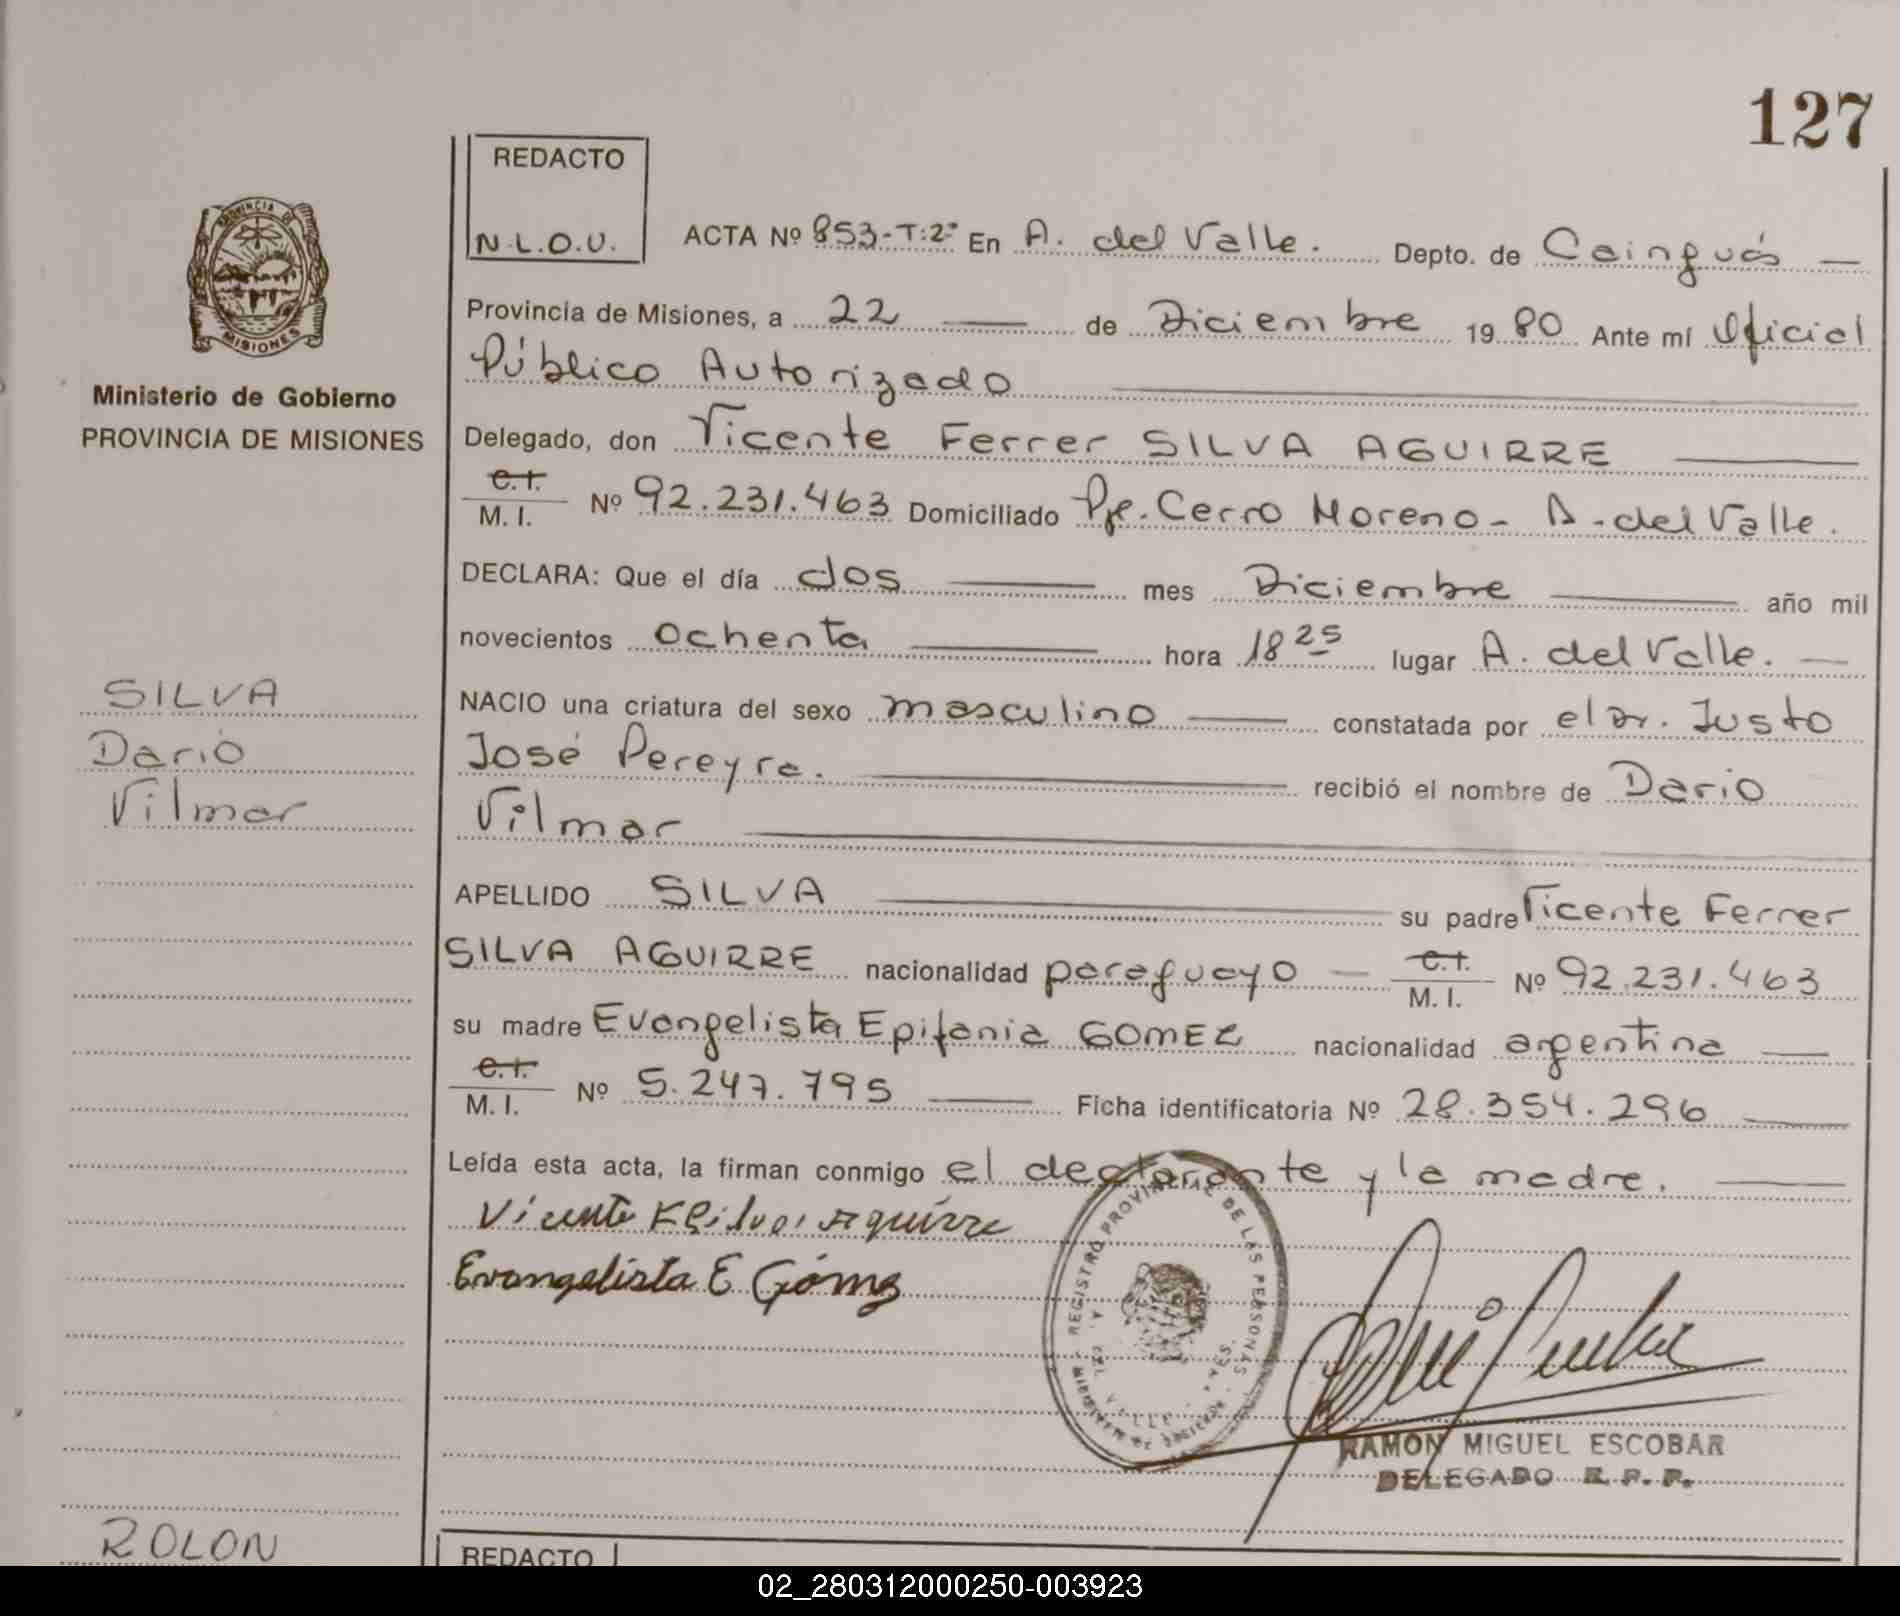 127
REDACTO
N.L.O.U.
ACTA Nº 853-T:2º En A. del Valle. Depto. de Cainguás
PROVINCIA DE MISIONES
Provincia de Misiones, a 22 de Diciembre 1980 Ante mí Oficial
Público Autorizado
Ministerio de Gobierno
PROVINCIA DE MISIONES
Delegado, don Vicente Ferrer SILVA AGUIRRE
C.I. M.I. Nº 92.231.463 Domiciliado Pje. Cerro Moreno - A. del Valle.
DECLARA: Que el día dos mes Diciembre año mil
novecientos ochenta hora 18 25 lugar A. del Valle.
SILVA
Dario
Vilmar
NACIO una criatura del sexo masculino constatada por el Dr. Justo
José Pereyra. recibió el nombre de Dario
Vilmar
APELLIDO SILVA su padre Vicente Ferrer
SILVA AGUIRRE nacionalidad paraguayo C.I. M.I. Nº 92.231.463
su madre Evangelista Epifania GOMEZ nacionalidad argentina
C.I. M.I. Nº 5.247.795 Ficha identificatoria Nº 28.354.296
Leída esta acta, la firman conmigo el declarante y la madre.
Vicente F Silva Aguirre
Evangelista E Gómez
REGISTRO PROVINCIAL DE LAS PERSONAS
RAMON MIGUEL ESCOBAR
DELEGADO R. P. P.
ROLON
REDACTO
02_280312000250-003923